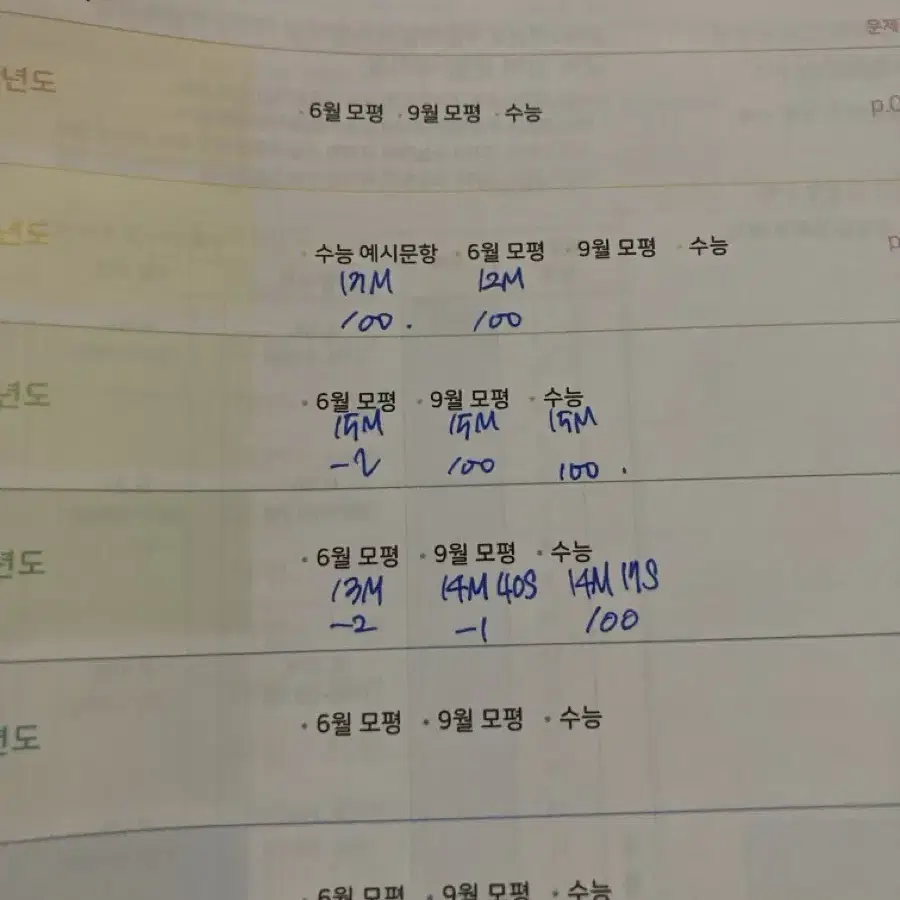 문제
년도 · 6월 모평 · 9월 모평 · 수능 p.0
년도 · 수능 예시문항 · 6월 모평 · 9월 모평 · 수능 p
17M 12M
100. 100
년도 · 6월 모평 · 9월 모평 · 수능
15M 15M 15M
-2 100 100.
년도 · 6월 모평 · 9월 모평 · 수능
13M 14M 40S 14M 17S
-2 -1 100
년도 · 6월 모평 · 9월 모평 · 수능
· 6월 모평 · 9월 모평 · 수능